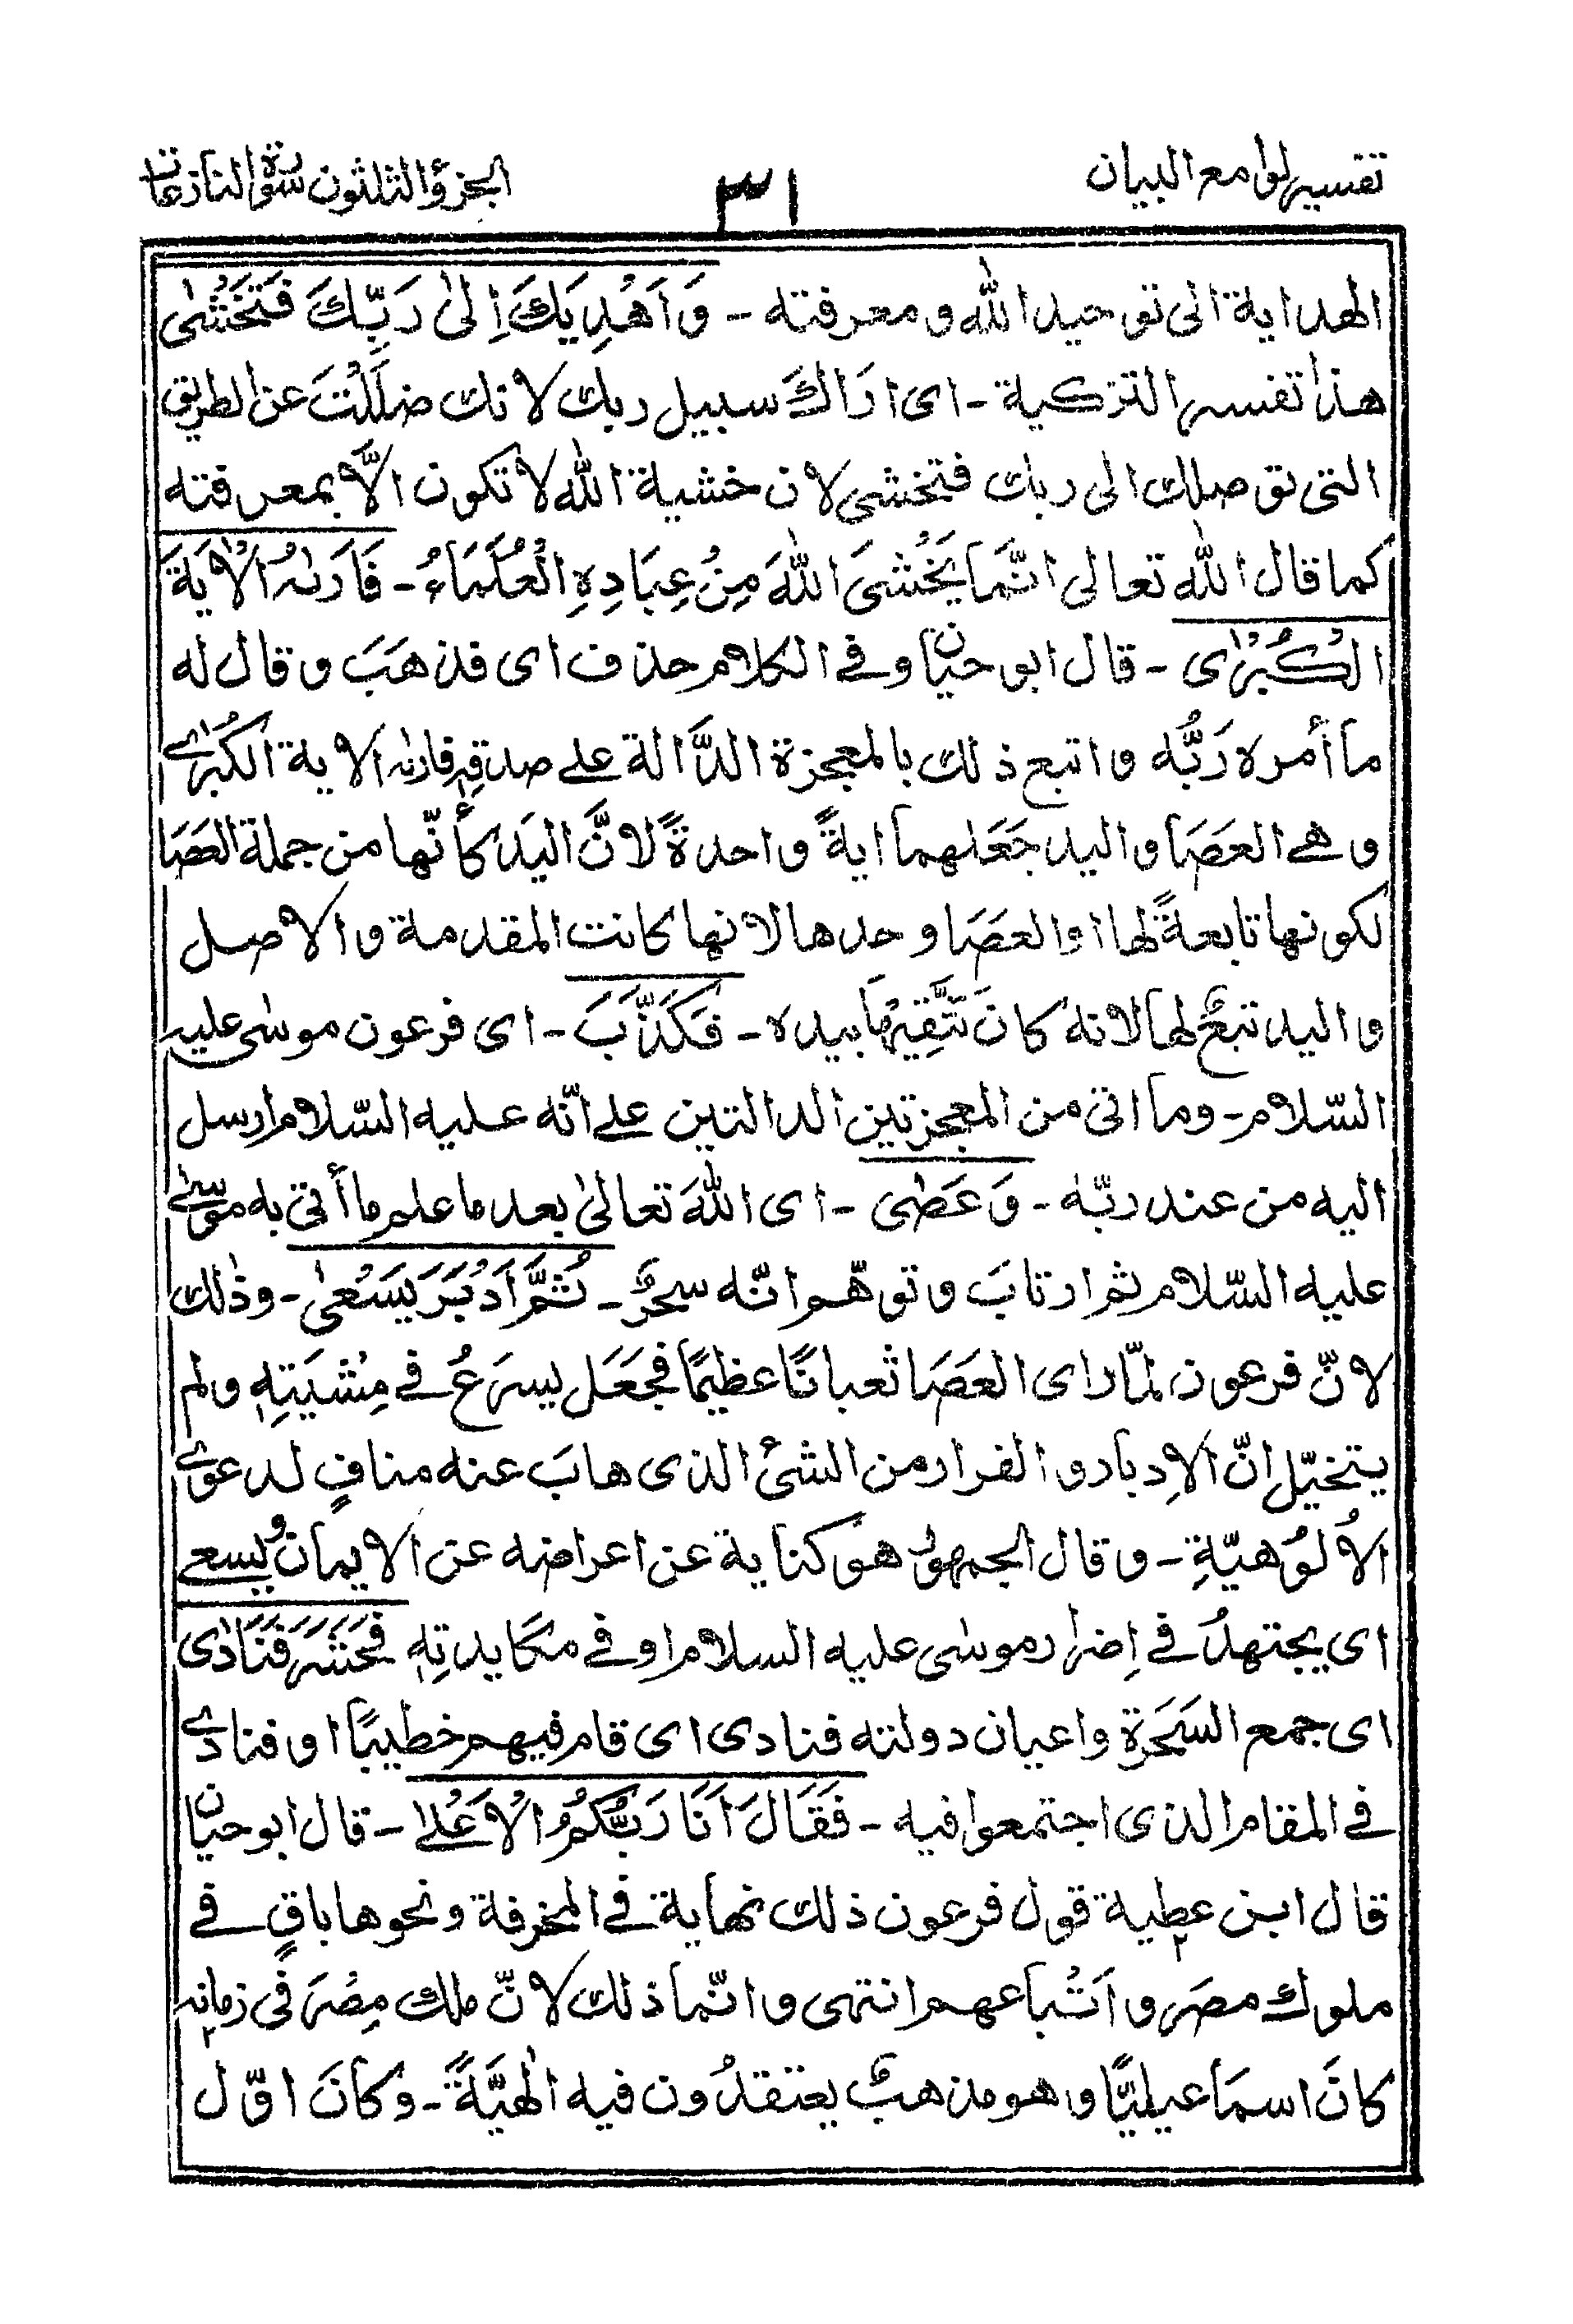 تفسير لوامع البيان
٣١
الجزؤ الثلثون سورة النازعات
الهداية الى توحيد الله ومعرفته - وَاَهْدِيَكَ اِلىٰ رَبِّكَ فَتَخْشٰى
هذا تفسير التزكية - اى ارَاكَ سبيل ربك لانك ضلَلْتَ عن الطريق
التى توصلك الى ربك فتخشى لان خشية الله لا تكون الَّا بمعرفته
كما قال الله تعالى انَّمَا يَخْشىَ اللهَ مِنْ عِبَادِهِ الْعُلَمَاءُ - فَاَرَىٰهُ الْاٰيَةَ
الْكُبْرٰى - قال ابو حيّان وفے الكلام حذف اى فذهَبَ وقال له
ما أمره رَبُّه واتبع ذلك بالمعجزة الدَّالة علے صدقِهٖ فارىٰه الاية الكُبْرٰے
وهے العَصَا واليد جَعَلهما ايةً واحدةً لانَّ اليَدَ كأنّها من جملة العَصَا
لكونها تابعةً لها او العَصَا وحدها لانها كانت المقدمة والاصل
واليد تبعٌ لها لانه كانَ تَتَّقِيْهَا بيده - فَكَذَّبَ - اى فرعون موسٰى عليه
السّلام - وما اتى من المعجزتين الدالتين علے انّه عليه السّلام ارسل
اليه من عند ربّه - وَعَصٰى - اى اللهَ تعالىٰ بعد ما علم ما أتى به موسٰے
عليه السّلام ثم ارتابَ وتوهّم انّه سحرٌ - ثُمَّ اَدْبَرَ يَسْعٰى - وذٰلك
لانّ فرعون لمّا راى العَصَا ثعبانًا عظيمًا فجَعَل يسرَعُ فے مِشْيَتِهٖ ولم
يتخيّل انّ الاِدبار والفرار من الشئ الذى هابَ عنه منافٍ لدعوے
الاُلُوْهيّةِ - وقال الجمهور هو كناية عن اعراضه عن الايمان ويسعے
اى يجتهدُ فے اِضرار موسٰى عليه السلام او فے مكايدتِهٖ فَحَشَرَ فَنَادٰى
اى جمع السَحَرة واعيان دولته فنادى اى قام فيهم خطيبًا او فنادٰے
فے المقام الذى اجتمعوا فيه - فَقَالَ اَنَا رَبُّكُمُ الْاَعْلےٰ - قال ابو حيان
قال ابن عطية قول فرعون ذلك نهاية فے المخرفة ونحوها باقٍ فے
ملوك مصر واَتْباعهم انتهى وانّما ذلك لانّ ملك مِصْرَ فى زمانه
كانَ اسمَاعيليًّا وهو مذهبٌ يعتقدُون فيه الٰهيَّةً - وكانَ اوّل